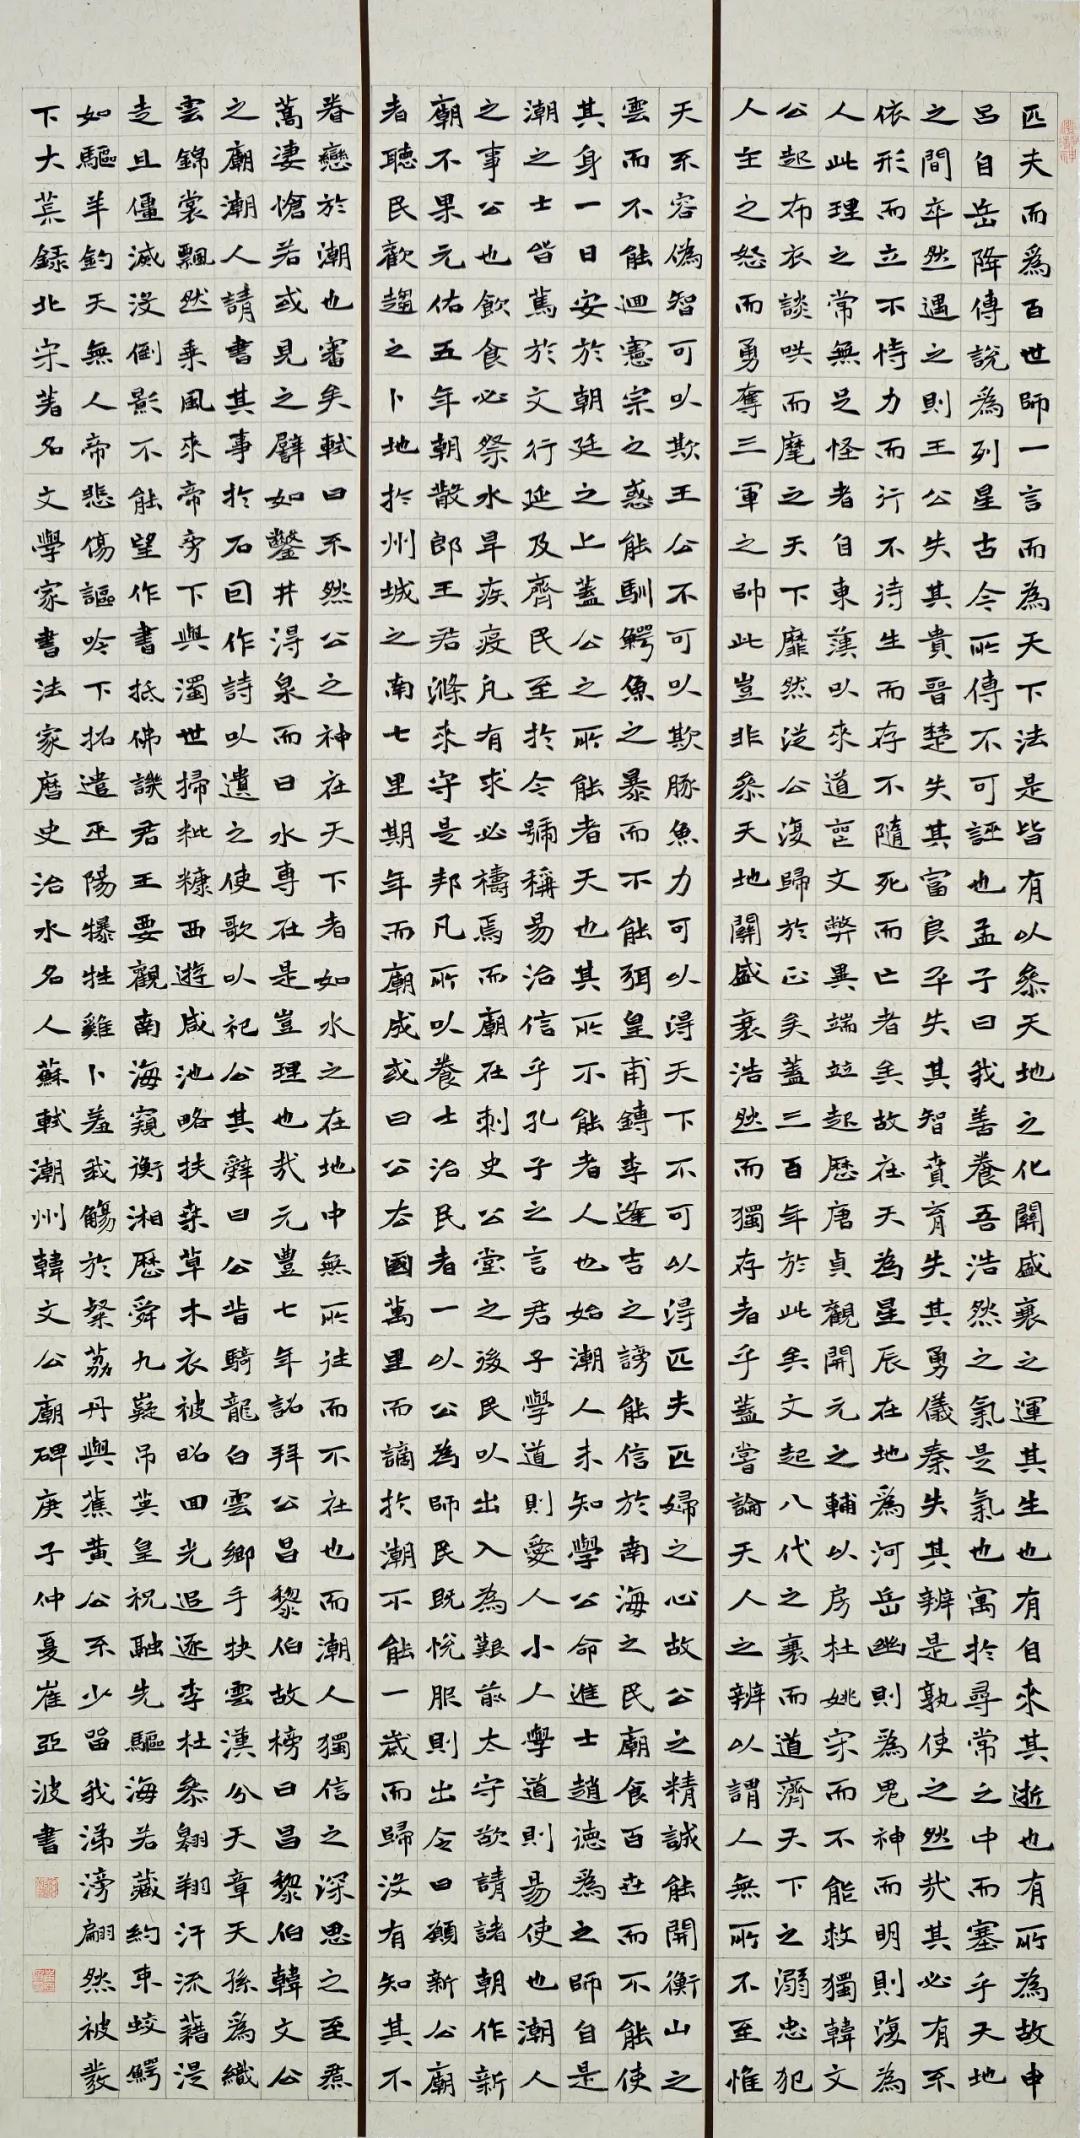 匹夫而為百世師一言而為天下法是皆有以參天地之化關盛衰之運其生也有自來其逝也有所為故申
呂自岳降傳說為列星古今所傳不可誣也孟子曰我善養吾浩然之氣是氣也寓於尋常之中而塞乎天地
之間卒然遇之則王公失其貴晉楚失其富良平失其智賁育失其勇儀秦失其辨是孰使之然哉其必有不
依形而立不恃力而行不待生而存不隨死而亡者矣故在天為星辰在地為河岳幽則為鬼神而明則復為
人此理之常無足怪者自東漢以來道喪文弊異端並起歷唐貞觀開元之輔以房杜姚宋而不能救獨韓文
公起布衣談笑而麾之天下靡然從公復歸於正矣蓋三百年於此矣文起八代之衰而道濟天下之溺忠犯
人主之怒而勇奪三軍之帥此豈非參天地關盛衰浩然而獨存者乎蓋嘗論天人之辨以謂人無所不至惟
天不容偽智可以欺王公不可以欺豚魚力可以得天下不可以得匹夫匹婦之心故公之精誠能開衡山之
雲而不能迴憲宗之惑能馴鱷魚之暴而不能弭皇甫鎛李逢吉之謗能信於南海之民廟食百世而不能使
其身一日安於朝廷之上蓋公之所能者天也其所不能者人也始潮人未知學公命進士趙德為之師自是
潮之士皆篤於文行延及齊民至於今號稱易治信乎孔子之言君子學道則愛人小人學道則易使也潮人
之事公也飲食必祭水旱疾疫凡有求必禱焉而廟在刺史公堂之後民以出入為艱前太守欲請諸朝作新
廟不果元佑五年朝散郎王君滌來守是邦凡所以養士治民者一以公為師民既悅服則出令曰願新公廟
者聽民歡趨之卜地於州城之南七里期年而廟成或曰公去國萬里而謫於潮不能一歲而歸沒有知其不
眷戀於潮也審矣軾曰不然公之神在天下者如水之在地中無所往而不在也而潮人獨信之深思之至焄
蒿淒愴若或見之譬如鑿井得泉而曰水專在是豈理也哉元豐七年詔拜公昌黎伯故榜曰昌黎伯韓文公
之廟潮人請書其事於石回作詩以遺之使歌以祀公其辭曰公昔騎龍白雲鄉手抉雲漢分天章天孫為織
雲錦裳飄然乘風來帝旁下與濁世掃秕糠西遊咸池略扶桑草木衣被昭回光追逐李杜參翱翔汗流藉湜
走且僵滅沒倒影不能望作書抵佛譏君王要觀南海窺衡湘歷舜九嶷吊英皇祝融先驅海若藏約束蛟鱷
如驅羊鈞天無人帝悲傷謳吟下招遣巫陽犦牲雞卜羞我觴於粲荔丹與蕉黃公不少留我涕滂翩然被髮
下大荒錄北宋著名文學家書法家歷史治水名人蘇軾潮州韓文公廟碑庚子仲夏崔亞波書